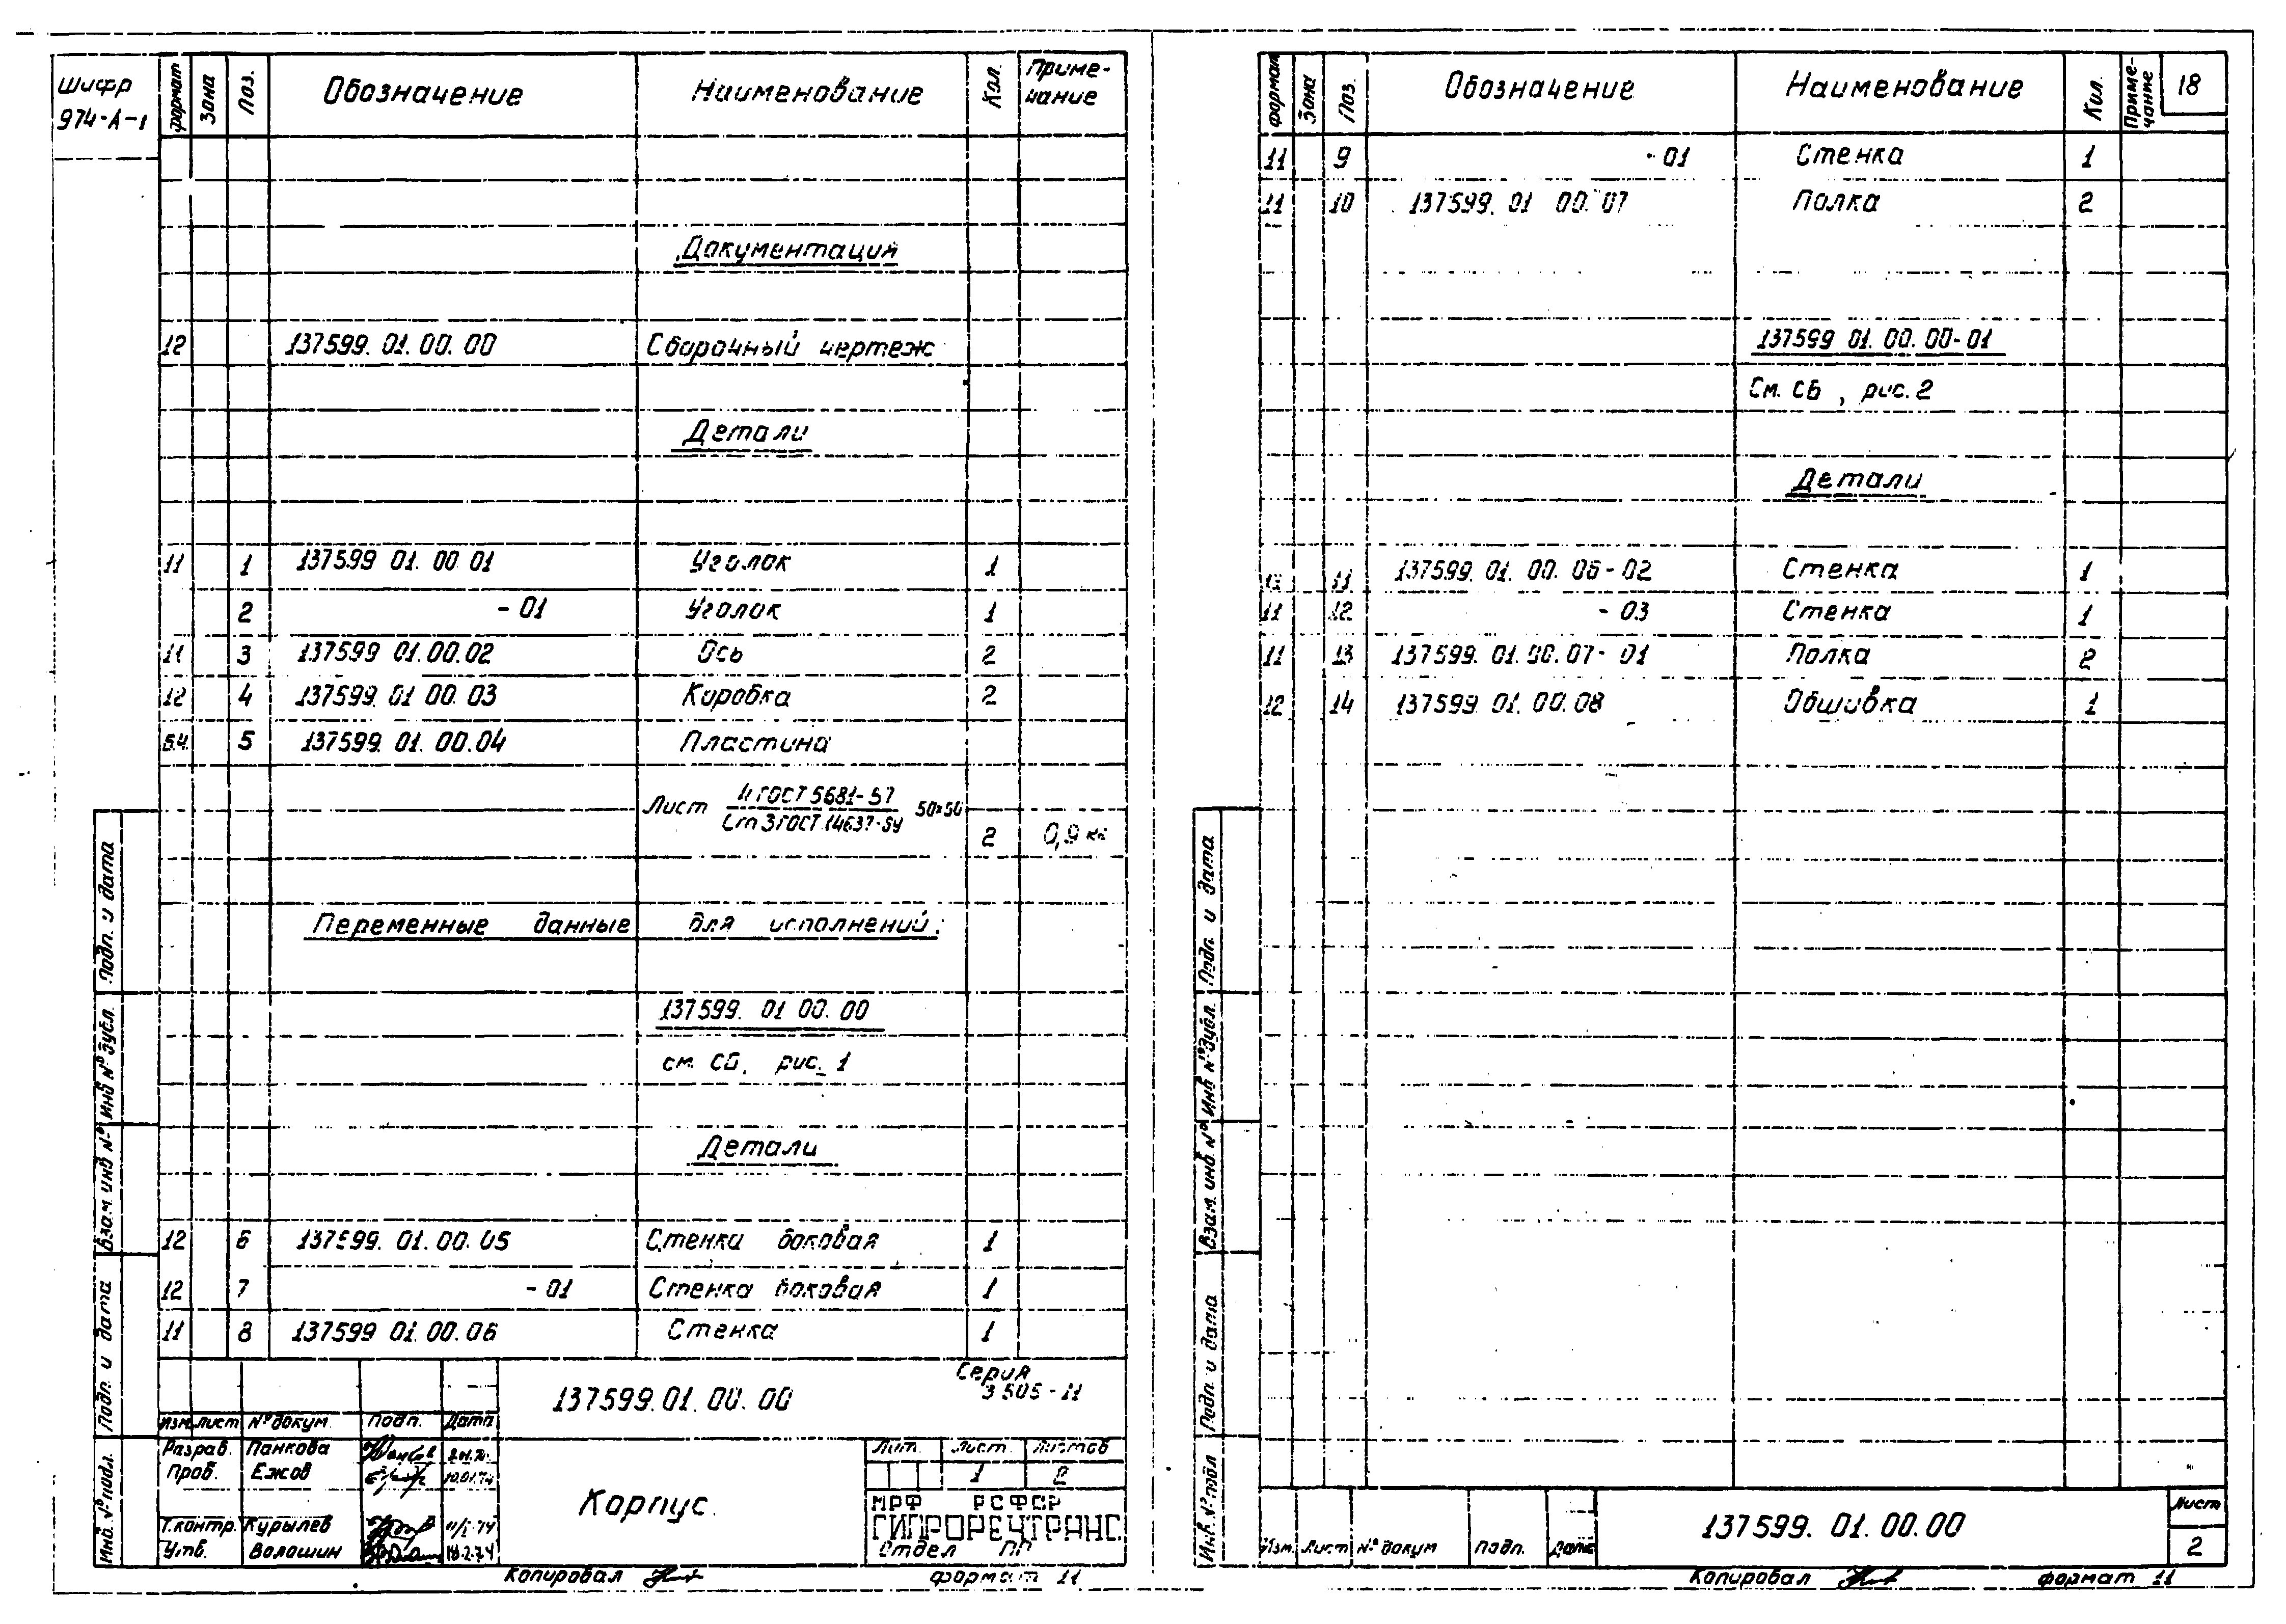 Шифр
974-А-1
формат Зона Поз. Обозначение Наименование Кол. Приме-
чание
Документация
12 137599. 01. 00. 00 Сборочный чертеж
Детали
11 1 137599 01. 00 01 Уголок 1
2 - 01 Уголок 1
11 3 137599 01.00.02 Ось 2
12 4 137599. 01 00. 03 Коробка 2
Б.Ч. 5 137599. 01. 00.04 Пластина
Лист ГОСТ 5681-57 50×50
Ст 3 ГОСТ 14637-69
2 0,9 кг
Переменные данные для исполнений:
137599. 01 00. 00
см. СБ, рис. 1
Детали
12 6 137599. 01. 00. 05 Стенка боковая 1
12 7 - 01 Стенка боковая 1
11 8 137599 01. 00. 06 Стенка 1
Подп. и дата
Инв № дубл.
Взам инв №
Подп. и дата
Инв. № подл.
137599. 01. 00. 00
Серия
3 505 - 11
Изм. Лист № докум. Подп. Дата
Разраб. Панкова
Пров. Ежов
Т.контр. Курылев
Утв. Волошин
Корпус.
Лит. Лист. Листов
1 2
МРФ РСФСР
ГИПРОРЕЧТРАНС
Отдел ПР
Копировал
формат 11
формат Зона Поз. Обозначение Наименование Кол. Приме-
чание
18
11 9 - 01 Стенка 1
11 10 137599. 01 00. 07 Полка 2
137599 01. 00. 00-01
См. СБ, рис. 2
Детали
11 11 137599. 01. 00. 06 - 02 Стенка 1
11 12 - 03 Стенка 1
11 13 137599. 01. 00. 07- 01 Полка 2
12 14 137599 01. 00. 08 Обшивка 1
Подп. и дата
Инв № дубл.
Взам. инв №
Подп. и дата
Инв. № подл
Изм. Лист № докум Подп. Дата
137599. 01. 00.00
Лист
2
Копировал
формат 11